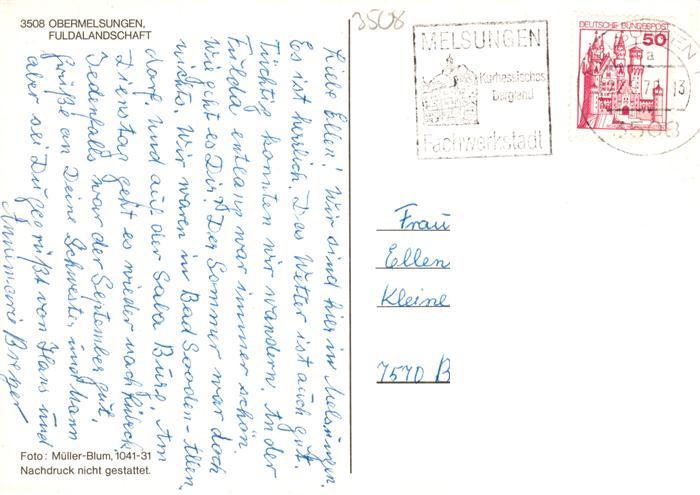 3508 OBERMELSUNGEN,
FULDALANDSCHAFT
Liebe Ellen! Wir sind hier in Melsungen.
Es ist herrlich. Das Wetter ist auch gut.
Tüchtig konnten wir wandern. An der
Fulda entlang war immer schön.
Wie geht es Dir? Der Sommer war doch
nichts. Wir waren in Bad Sooden-Allen
dorf, und auf der Saba Burg. Am
Dienstag geht es wieder nach Lübeck
Jedenfalls war der September gut.
Grüße an Deine Schwester und Mann
aber sei Du gegrüßt von Hans und
Annemarie
Foto: Müller-Blum, 1041-31
Nachdruck nicht gestattet.
3508
MELSUNGEN
Kurhessisches
Bergland
Fachwerkstadt
DEUTSCHE BUNDESPOST
50
a
13
3508
Frau
Ellen
Kleine
7570 B